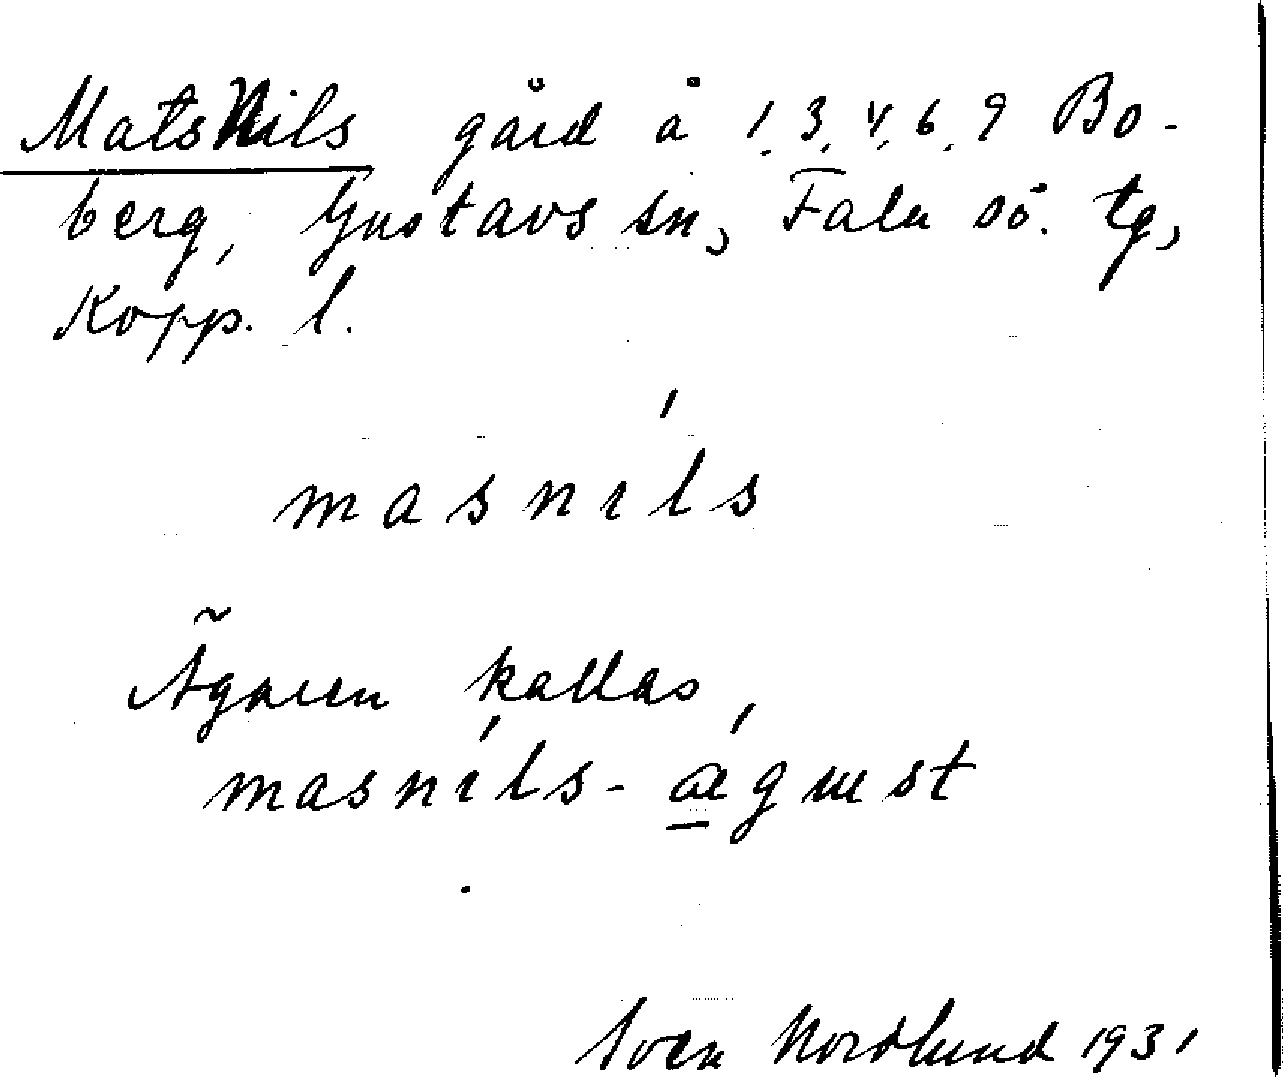 MatsNils gård å 1, 3, 4, 6, 9 Bo-
berg, Gustavs sn, Falu sö. tg,
Kopp. l.
masnıĺs
Ägaren kallas
masnı́ls-ægɯst
Sven Nordlund 1931